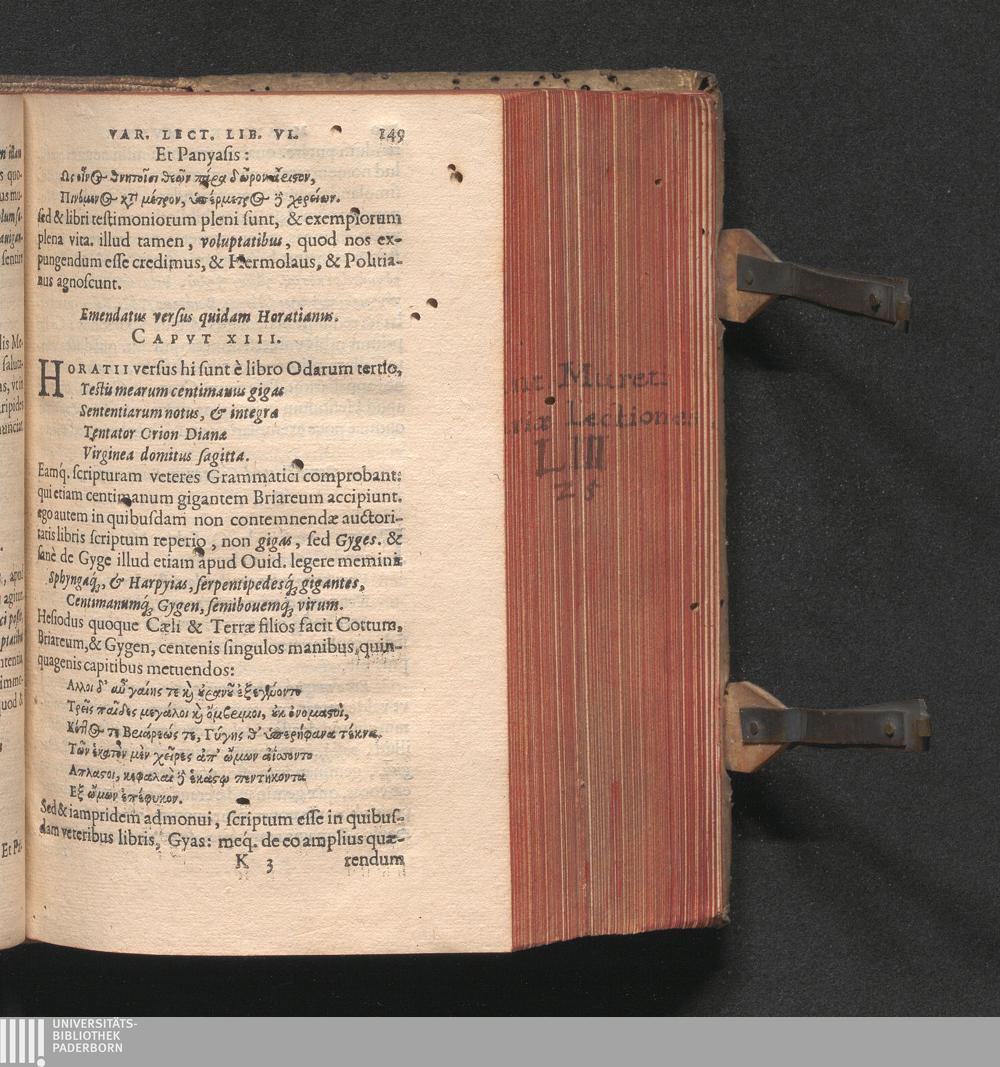 VAR. LECT. LIB. VI. 149
Et Panyasis:
Ως οἶνος θνητοῖσι θεῶν πάρα δῶρον ἄριστον,
Πινόμενος κατὰ μέτρον, ὑπέρμετρος δὲ χερείων.
sed & libri testimoniorum pleni sunt, & exemplorum
plena vita. illud tamen, voluptatibus, quod nos ex-
pungendum esse credimus, & Hermolaus, & Politia-
nus agnoscunt.
Emendatus versus quidam Horatianus.
CAPVT XIII.
HORATII versus hi sunt è libro Odarum tertio,
Testis mearum centimanus gigas
Sententiarum notus, & integræ
Tentator Orion Dianæ
Virginea domitus sagitta.
Eamq́. scripturam veteres Grammatici comprobant:
qui etiam centimanum gigantem Briareum accipiunt.
ego autem in quibusdam non contemnendæ auctori-
tatis libris scriptum reperio, non gigas, sed Gyges. &
sanè de Gyge illud etiam apud Ouid. legere memini:
Sphyngaq́;, & Harpyias, serpentipedesq́; gigantes,
Centimanumq́; Gygen, semibouemq́; virum.
Hesiodus quoque Cæli & Terræ filios facit Cottum,
Briareum, & Gygen, centenis singulos manibus, quin-
quagenis capitibus metuendos:
Αλλοι δ' αὖ γαίης τε καὶ οὐρανοῦ ἐξεγένοντο
Τρεῖς παῖδες μεγάλοι καὶ ὄμβριμοι, οὐκ ὀνομαστοὶ,
Κόττος τε Βριάρεώς τε, Γύγης θ' ὑπερήφανα τέκνα.
Τῶν ἑκατὸν μὲν χεῖρες ἀπ' ὤμων ἀΐσσοντο
Απλαστοι, κεφαλαὶ δὲ ἑκάστῳ πεντήκοντα
Εξ ὤμων ἐπέφυκον.
Sed & iampridem admonui, scriptum esse in quibus-
dam veteribus libris, Gyas: meq́. de eo amplius quæ-
K 3 rendum
Mureti
Lectiones
LIII
25
UNIVERSITÄTS-
BIBLIOTHEK
PADERBORN